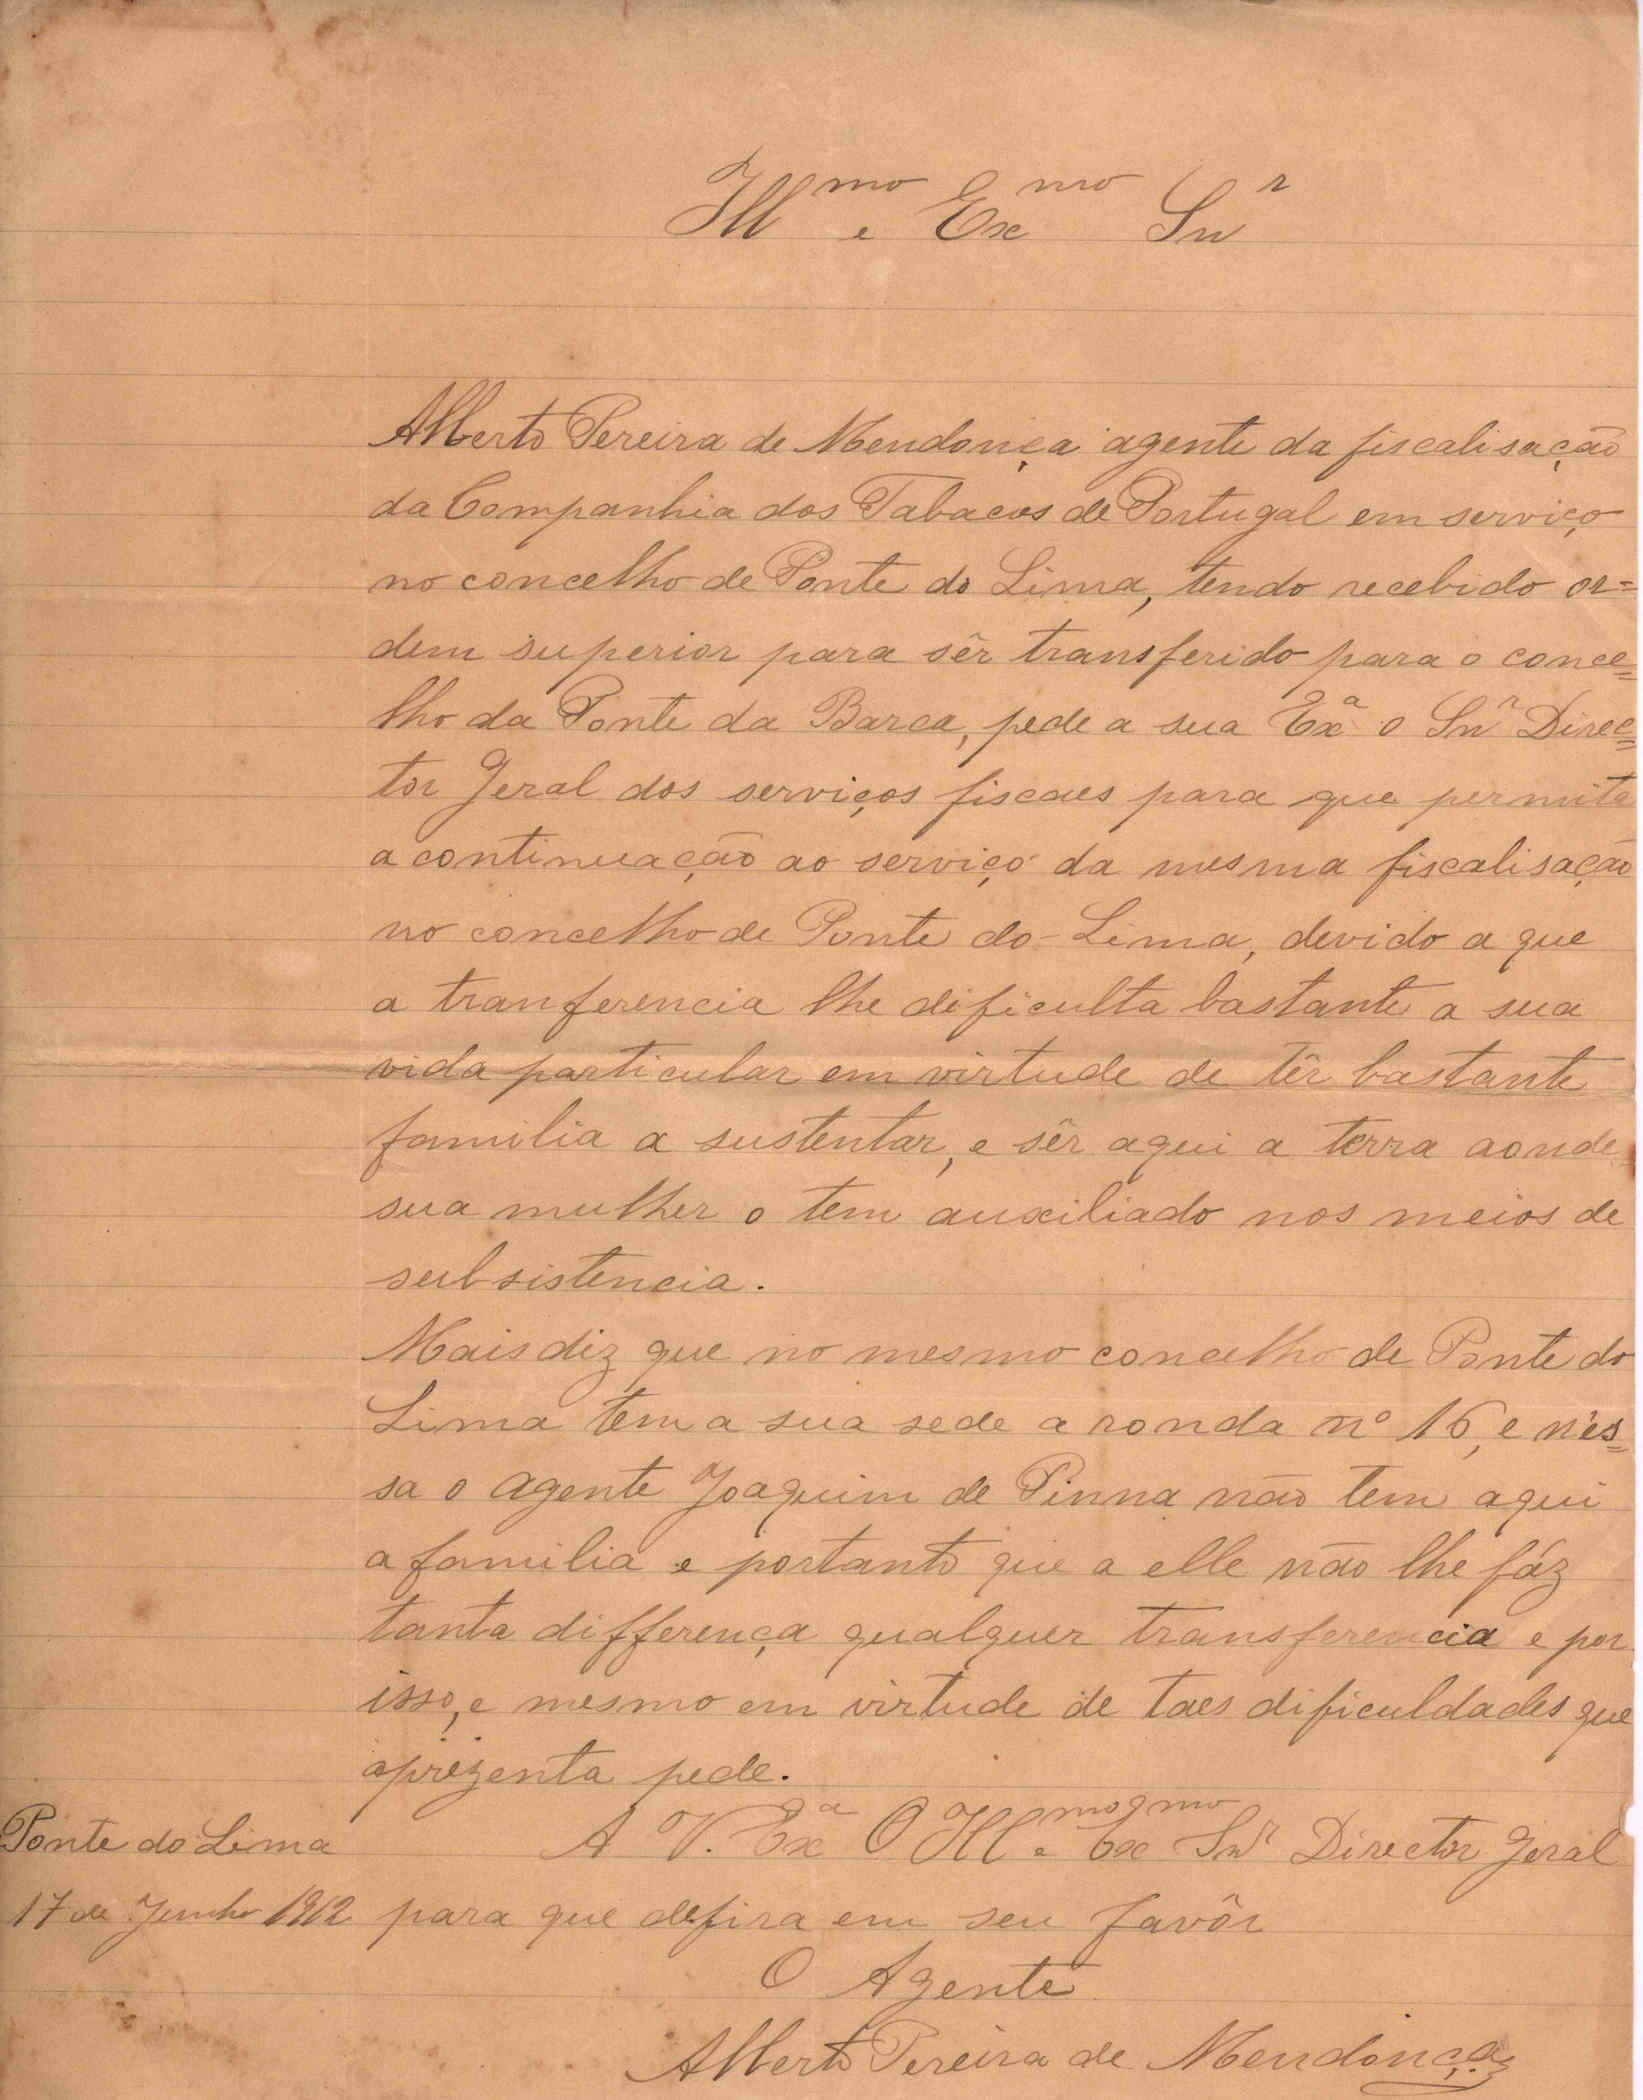 Ill.mo e Ex.mo Snr
Alberto Pereira de Mendonça agente da fiscalisação
da Companhia dos Tabacos de Portugal em serviço
no concelho de Ponte do Lima, tendo recebido or=
dem superior para sêr transferido para o conce=
lho da Ponte da Barca, pede a sua Exª o Snr Direc=
tor Geral dos serviços fiscaes para que permita
a continuação ao serviço da mesma fiscalisação
no concelho de Ponte do Lima, devido a que
a tranferencia lhe dificulta bastante a sua
vida particular em virtude de têr bastante
familia a sustentar, e sêr aqui a terra aonde
sua mulher o tem auxiliado nos meios de
subsistencia.
Mais diz que no mesmo concelho de Ponte do
Lima tem a sua sede a ronda nº 16, e n'es=
sa o agente Joaquim de Pinna não tem aqui
a familia e portanto que a elle não lhe fáz
tanta differença qualquer transferencia e por
isso, e mesmo em virtude de taes dificuldades que
aprezenta pede.
A V. Exª O Ill.mo e Ex.mo Snr Director Geral
para que defira em seu favôr
Ponte do Lima
17 de Junho 1912
O Agente
Alberto Pereira de Mendonça